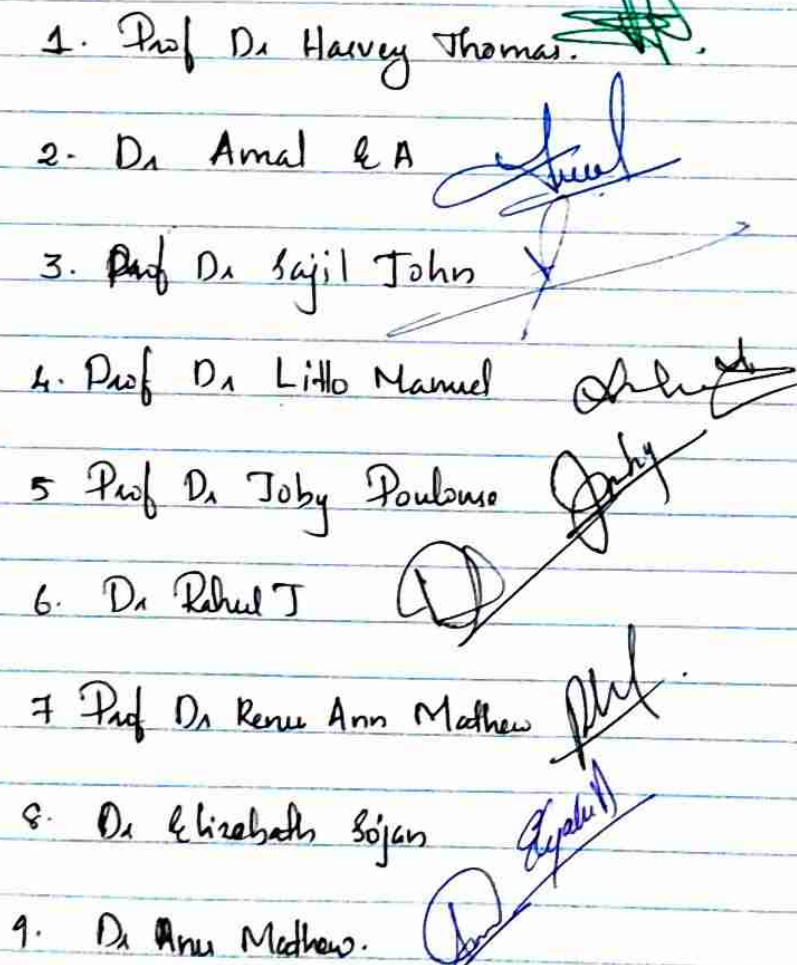 1. Prof Dr Harvey Thomas.
2. Dr Amal E A
3. Prof Dr Sajil John
4. Prof Dr Litto Manuel
5 Prof Dr Joby Poulouse
6. Dr Rahul J
7 Prof Dr Renu Ann Mathew
8. Dr Elizabeth Sojan
9. Dr Anu Mathew.